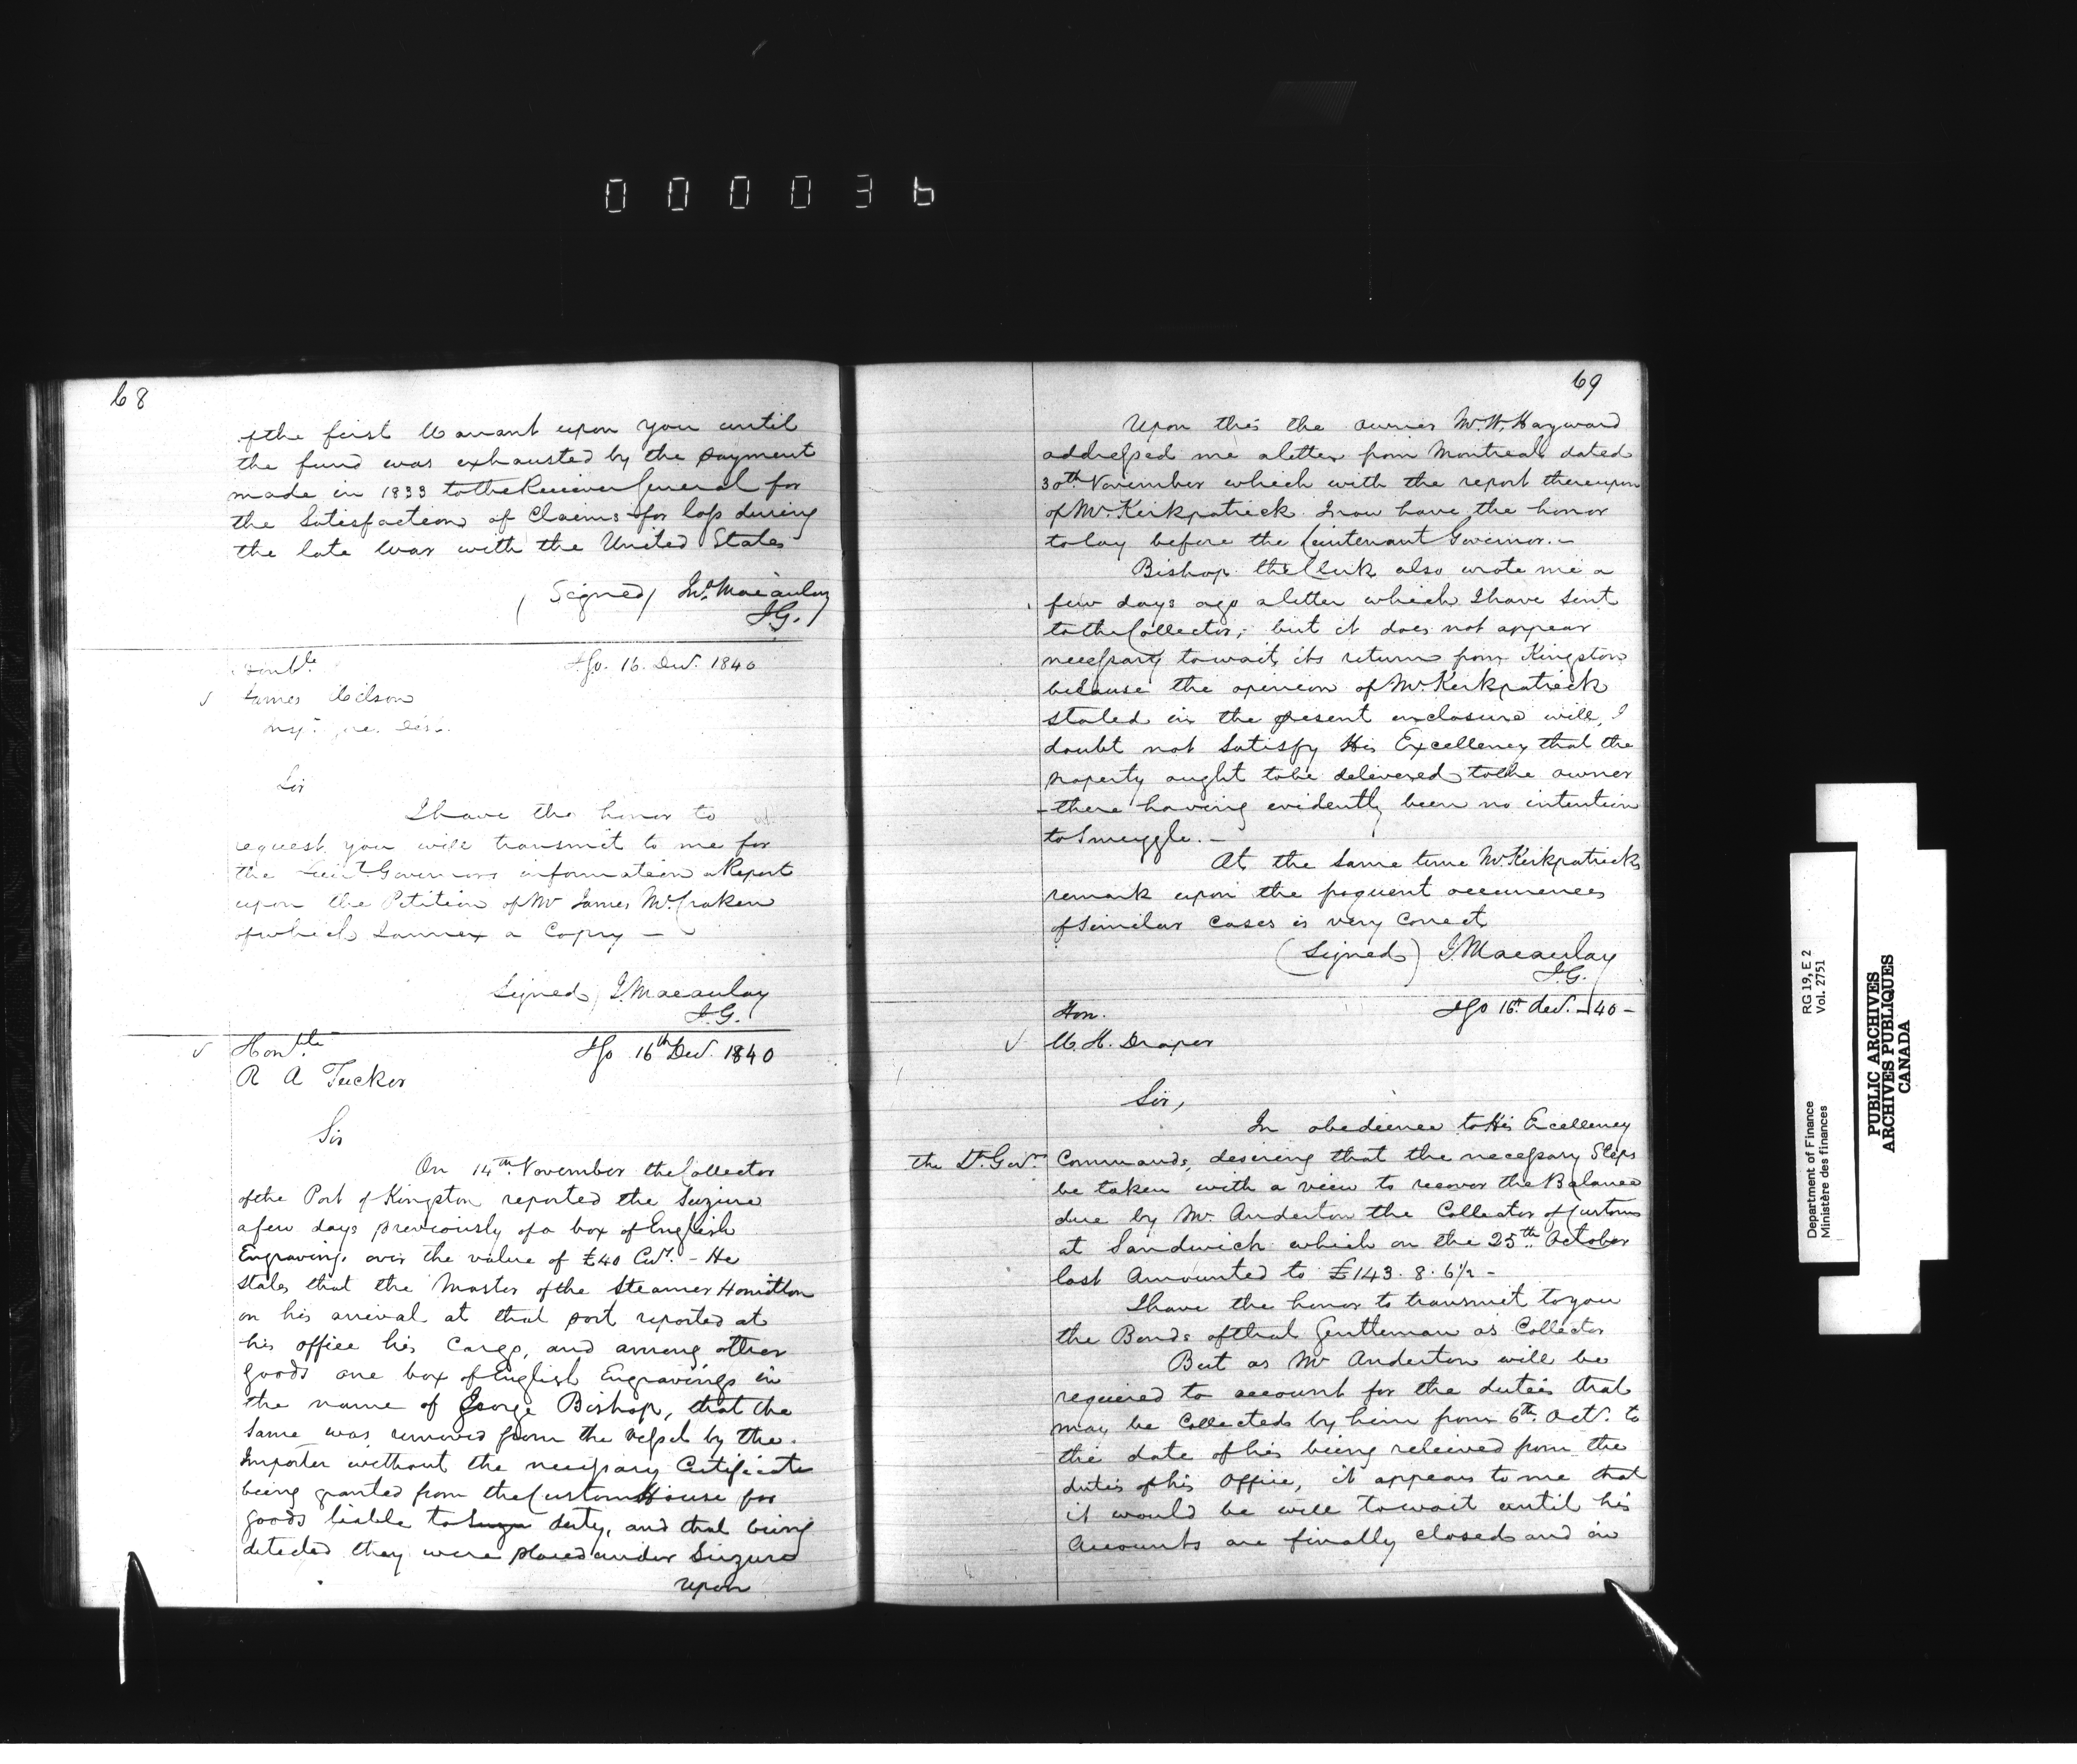 000036
68
of the first Warrant upon you until
the fund was exhausted by the payment
made in 1833 to the Receiver General for
the Satisfaction of Claims for loss during
the late War with the United States
(Signed) Jno. Macaulay
I.G.
Honble IGO. 16. Decr. 1840
James Wilson
Sir
I have the honor to
request you will transmit to me for
the Lieut. Governors information a Report
upon the Petition of Mr James McCraken
of which I annex a Copy —
Signed) J. Macaulay
I.G.
Honble IGO 16th Decr. 1840
R A Tucker
Sir
On 14th November the Collector
of the Port of Kingston reported the Seizure
a few days previously of a box of English
Engravings over the value of £40 Cur. – He
states that the Master of the Steamer Hamilton
on his arrival at that port reported at
his office his Cargo, and among other
goods one box of English Engravings in
the name of George Bishop, that the
same was removed from the Vessel by the
Importer without the necessary Certificate
being granted from the Custom House for
goods liable to duty, and that being
detected they were placed under Seizure
upon
69
Upon this the owner Mr. W. Hayward
addressed me a letter from Montreal dated
30th November which with the report thereupon
of Mr. Kirkpatrick I now have the honor
to lay before the Lieutenant Governor. –
Bishop the Clerk also wrote me a
few days ago a letter which I have sent
to the Collector, but it does not appear
necessary to wait its return from Kingston
because the opinion of Mr. Kirkpatrick
stated in the present enclosure will, I
doubt not satisfy His Excellency that the
property ought to be delivered to the owner
– there having evidently been no intention
to Smuggle. –
At the same time Mr. Kirkpatricks
remark upon the frequent occurrences
of similar cases is very correct
(Signed) J. Macaulay
I.G.
Hon. IGO 16th Decr. – 40 –
W. H. Draper
Sir,
In obedience to His Excellency
the Lt. Govrs Commands, desiring that the necessary Steps
be taken with a view to recover the Balance
due by Mr. Anderton the Collector of Customs
at Sandwich which on the 25th October
last Amounted to £143. 8. 6½ –
I have the honor to transmit to you
the Bonds of that Gentleman as Collector
But as Mr Anderton will be
required to account for the duties that
may be Collected by him from 6th Octr. to
the date of his being relieved from the
duties of his Office, it appears to me that
it would be well to wait until his
Accounts are finally closed and in
Department of Finance RG 19, E 2
Ministère des finances Vol. 2751
PUBLIC ARCHIVES
ARCHIVES PUBLIQUES
CANADA